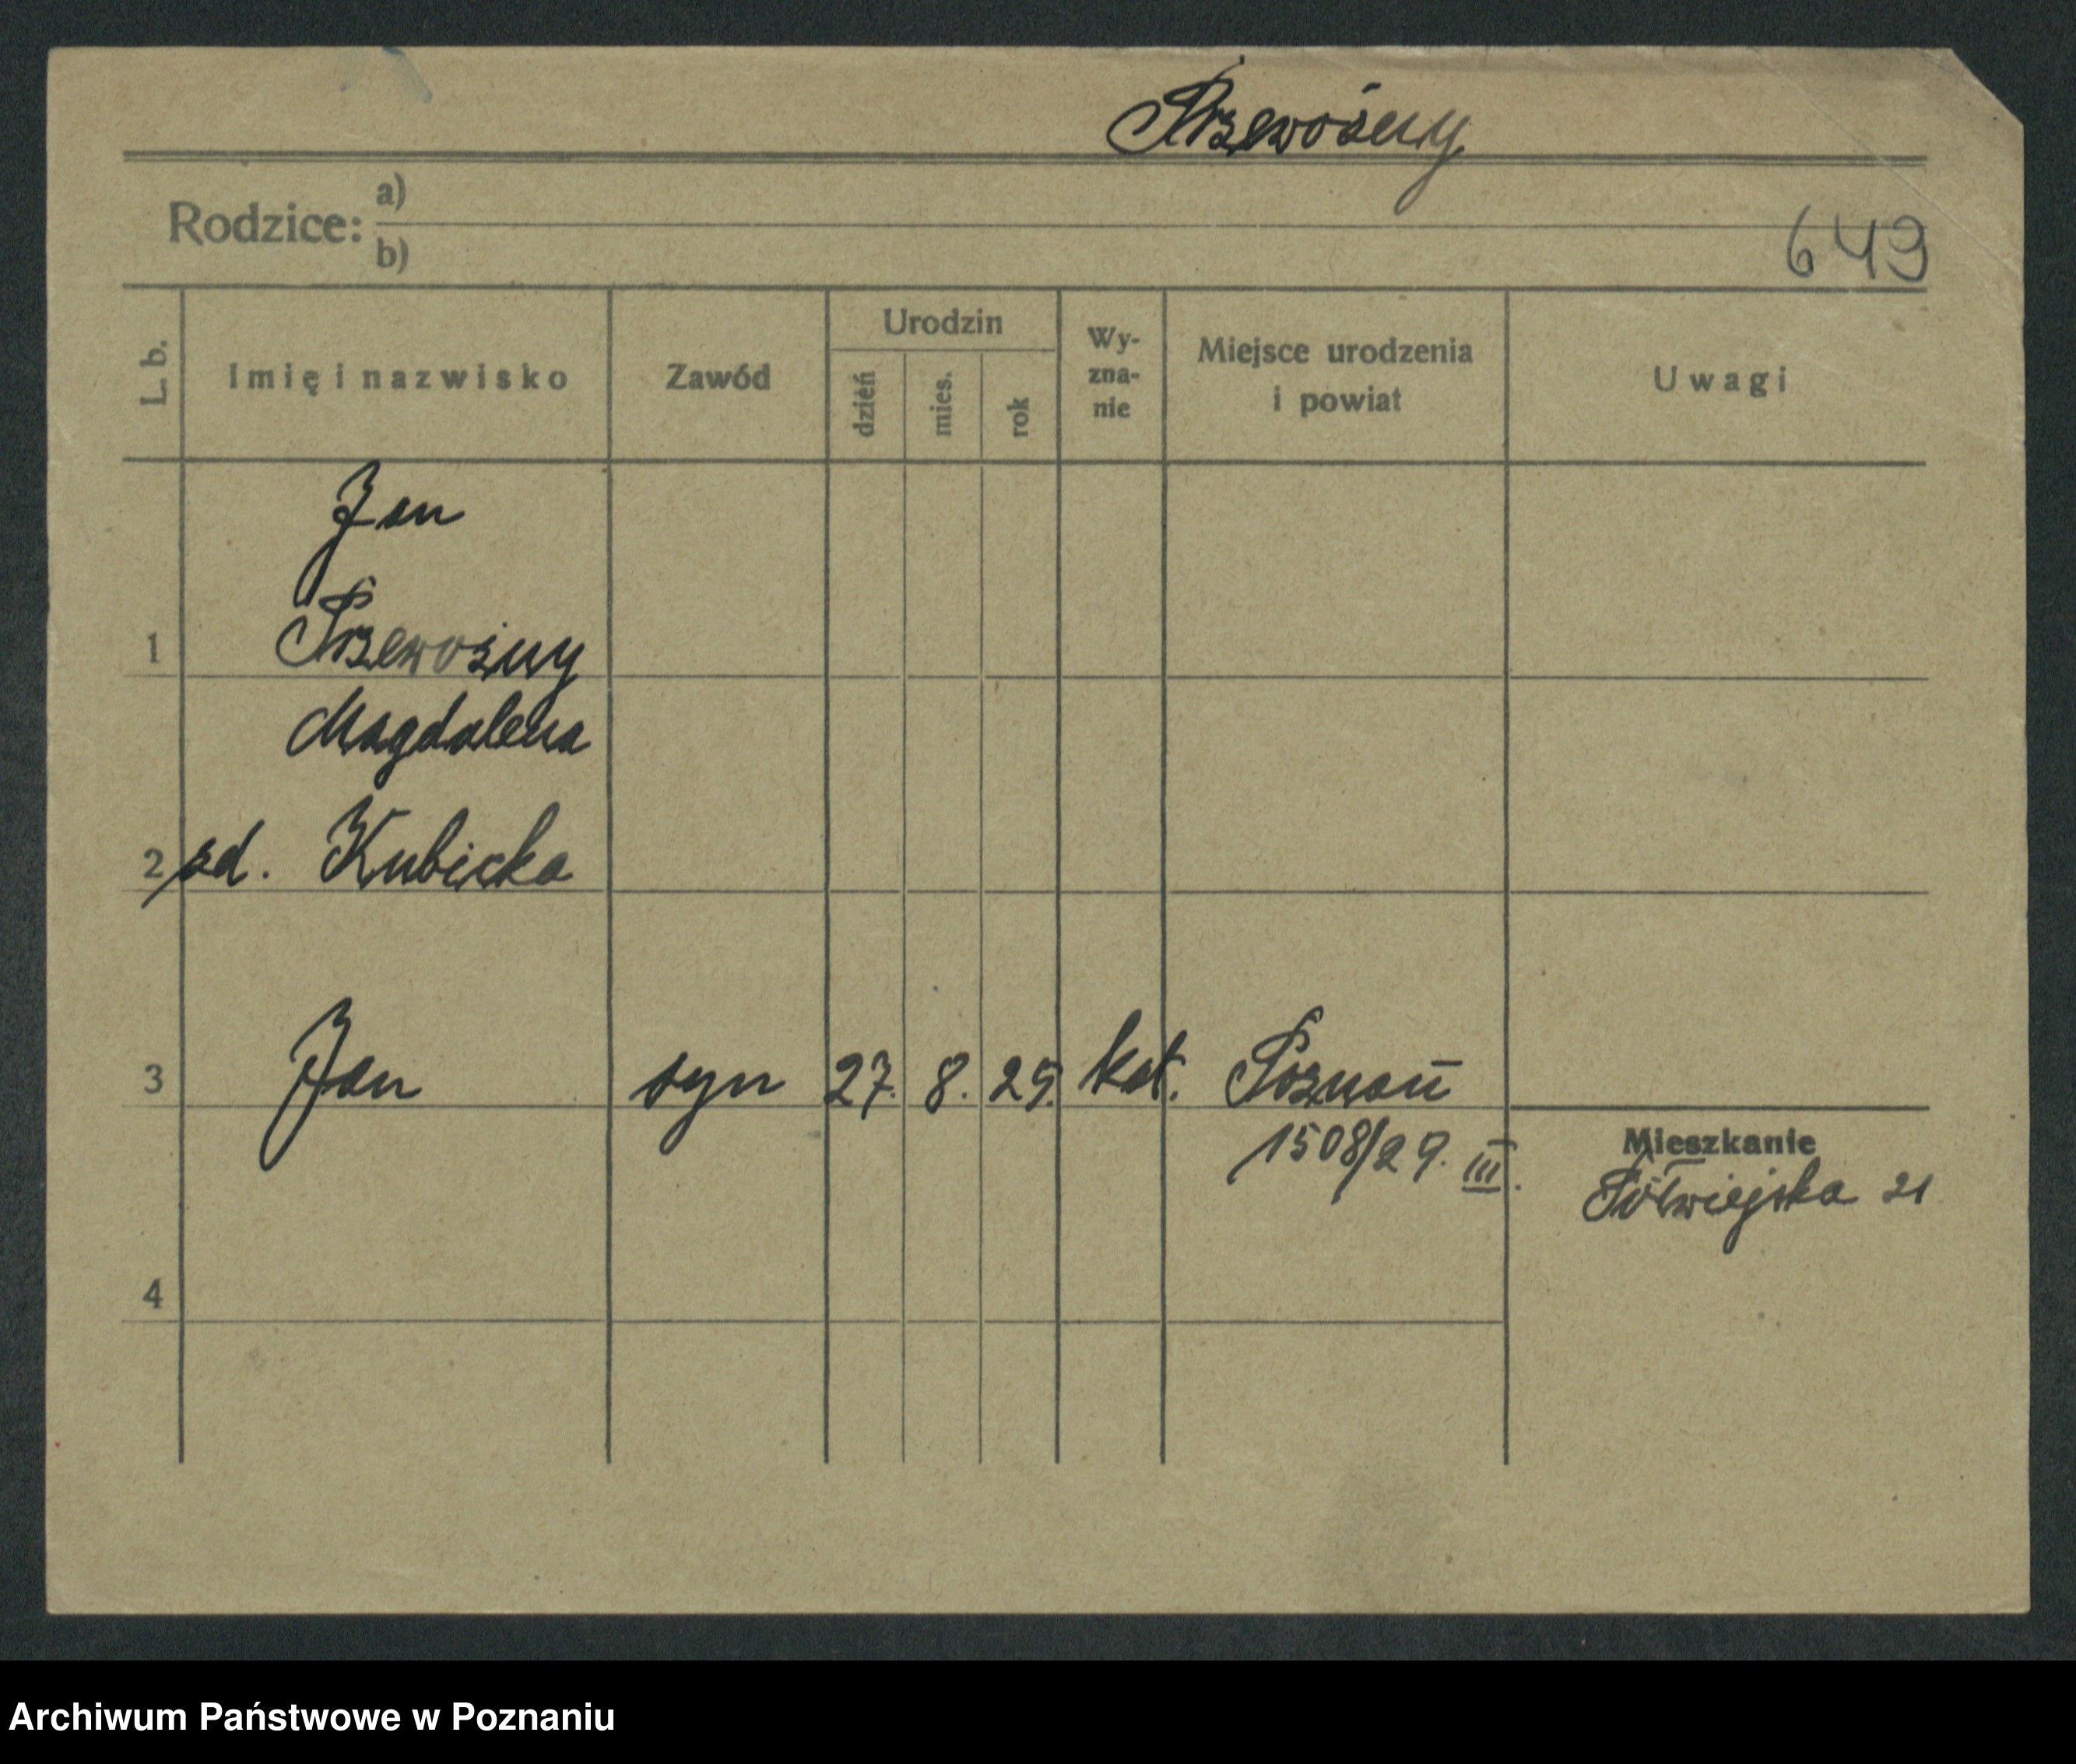 Przewoźny
Rodzice: a)
b)
649
L. b. Imię i nazwisko Zawód Urodzin dzień mies. rok Wy-zna-nie Miejsce urodzenia i powiat Uwagi
Jan
1 Przewoźny
Magdalena
2 zd. Kubicka
3 Jan syn 27. 8. 29. kat. Poznań
1508/29. III.
Mieszkanie
Półwiejska 21
4
Archiwum Państwowe w Poznaniu